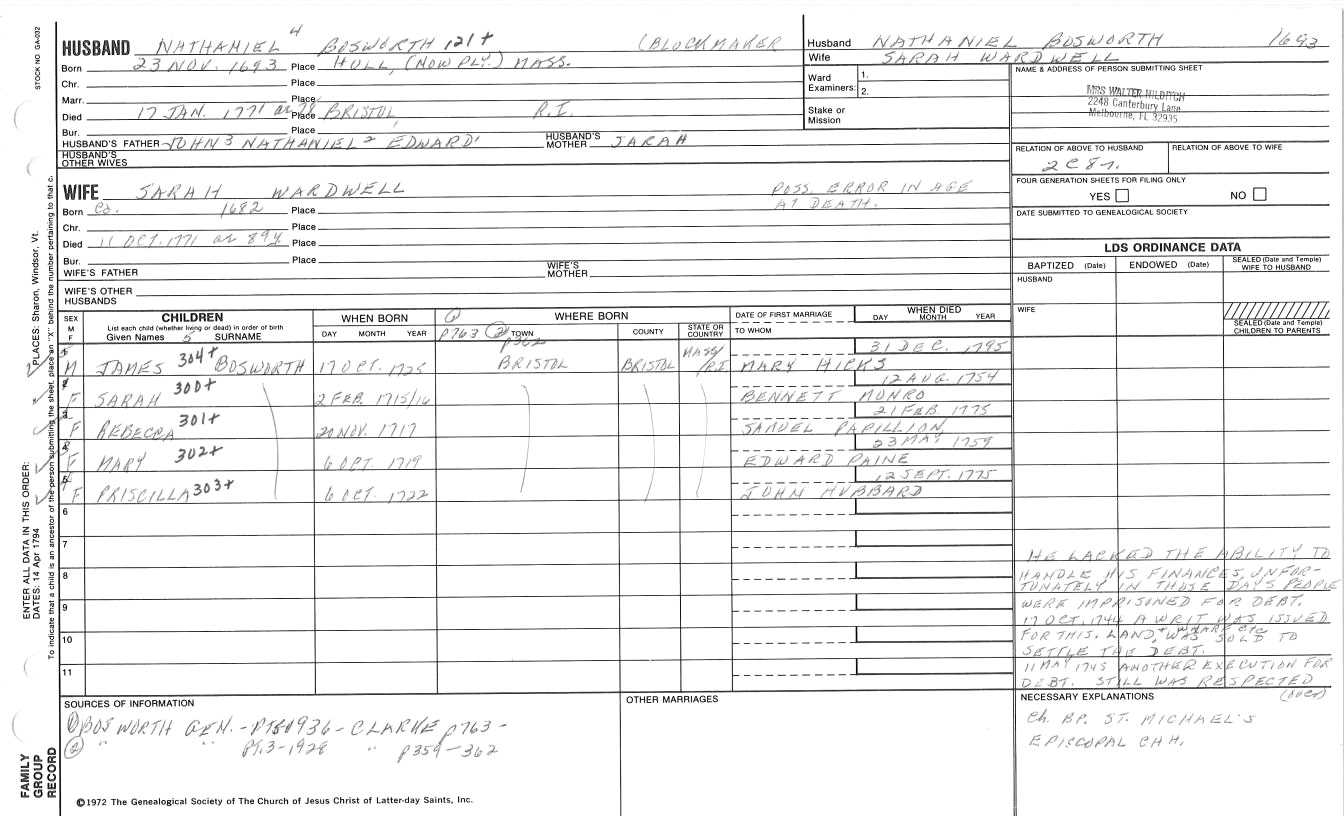 STOCK NO. GA-032
HUSBAND NATHANIEL 4 BOSWORTH 121+ (BLOCKMAKER
Born 23 NOV. 1693 Place HULL, (NOW PLY.) MASS.
Chr. Place
Marr. Place
Died 17 JAN. 1771 ae 78 Place BRISTOL, R.I.
Bur. Place
HUSBAND'S FATHER JOHN 3 NATHANIEL 2 EDWARD 1 HUSBAND'S MOTHER SARAH
HUSBAND'S OTHER WIVES
Husband NATHANIEL BOSWORTH 1693
Wife SARAH WARDWELL
Ward Examiners: 1.
2.
Stake or Mission
NAME & ADDRESS OF PERSON SUBMITTING SHEET
MRS WALTER HILDITCH
2248 Canterbury Lane
Melbourne, FL 32935
RELATION OF ABOVE TO HUSBAND RELATION OF ABOVE TO WIFE
2C8r.
FOUR GENERATION SHEETS FOR FILING ONLY
YES NO
DATE SUBMITTED TO GENEALOGICAL SOCIETY
WIFE SARAH WARDWELL POSS. ERROR IN AGE
AT DEATH.
Born Ca. 1682 Place
Chr. Place
Died 11 OCT. 1771 ae 89y Place
Bur. Place
WIFE'S FATHER WIFE'S MOTHER
WIFE'S OTHER HUSBANDS
LDS ORDINANCE DATA
BAPTIZED (Date) ENDOWED (Date) SEALED (Date and Temple) WIFE TO HUSBAND
HUSBAND
WIFE
SEALED (Date and Temple) CHILDREN TO PARENTS
SEX M F
CHILDREN
List each child (whether living or dead) in order of birth
Given Names 5 SURNAME
WHEN BORN
DAY MONTH YEAR
WHERE BORN
① P763 ② P362
TOWN COUNTY STATE OR COUNTRY
DATE OF FIRST MARRIAGE
TO WHOM
WHEN DIED
DAY MONTH YEAR
31 DEC. 1795
M JAMES 304+ BOSWORTH 17 OCT. 1725 BRISTOL BRISTOL MASS/RI MARY HICKS
12 AUG. 1754
F SARAH 300+ 2 FEB. 1715/16 BENNETT MUNRO
21 FEB 1775
F REBECCA 301+ 20 NOV. 1717 SAMUEL PAPILLION,
23 MAY 1759
F MARY 302+ 6 OCT. 1719 EDWARD PAINE
12 SEPT. 1775
F PRISCILLA 303+ 6 OCT. 1722 JOHN HUBBARD
6
7
8
9
10
11
HE LACKED THE ABILITY TO
HANDLE HIS FINANCES, UNFOR-
TUNATELY IN THOSE DAYS PEOPLE
WERE IMPRISONED FOR DEBT.
17 OCT. 1744 A WRIT WAS ISSUED
FOR THIS. LAND, + WHARF ETC WAS SOLD TO
SETTLE THE DEBT.
11 MAY 1745 ANOTHER EXECUTION FOR
DEBT. STILL WAS RESPECTED
(OVER)
SOURCES OF INFORMATION
① BOSWORTH GEN. - 1936 - CLARKE p763 -
② " " PT. 3 - 1928 " p359-362
OTHER MARRIAGES
NECESSARY EXPLANATIONS
Ch. BP. ST. MICHAEL'S
EPISCOPAL CHH.
©1972 The Genealogical Society of The Church of Jesus Christ of Latter-day Saints, Inc.
FAMILY GROUP RECORD
ENTER ALL DATA IN THIS ORDER:
DATES: 14 Apr 1794
PLACES: Sharon, Windsor, Vt.
To indicate that a child is an ancestor of the person submitting the sheet, place an "X" behind the number pertaining to that c.